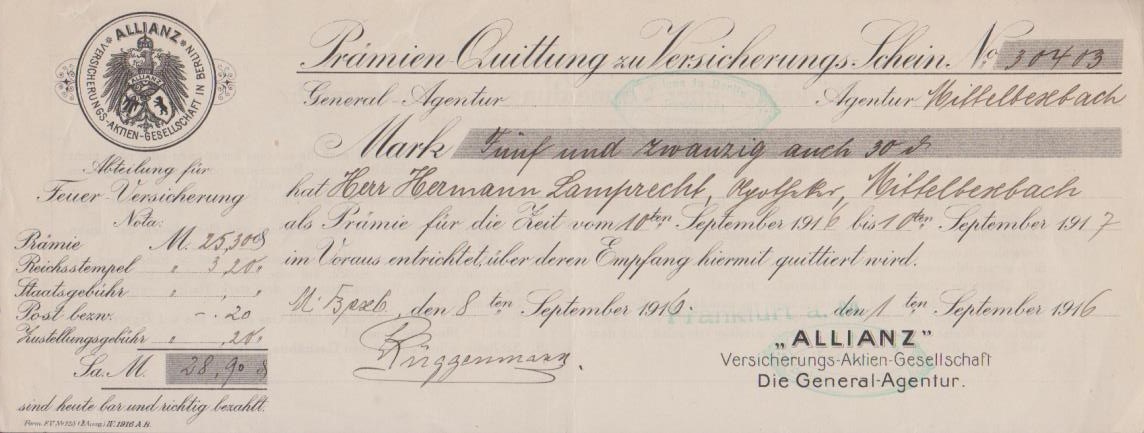 ALLIANZ
VERSICHERUNGS-AKTIEN-GESELLSCHAFT IN BERLIN
ALLIANZ
Abteilung für
Feuer-Versicherung
Nota:
Prämie M. 25,30 ₰
Reichsstempel " 3,20 "
Staatsgebühr " , "
Post bezw. - . 20
Zustellungsgebühr " , 20 "
Sa. M. 28,90 ₰
sind heute bar und richtig bezahlt.
Form. F.V. Nr. 125 IX. 1916 A.B.
Prämien-Quittung zu Versicherungs-Schein No. 30403
General-Agentur Agentur Mittelbexbach
Mark Fünf und zwanzig auch 30 ₰
hat Herr Hermann Lamprecht, Apotheker, Mittelbexbach
als Prämie für die Zeit vom 10ten September 1916 bis 10ten September 1917
im Voraus entrichtet, über deren Empfang hiermit quittiert wird.
M. Bexb, den 8ten September 1916.
Frankfurt a. den 1ten September 1916
Rüggenmann.
"ALLIANZ"
Versicherungs-Aktien-Gesellschaft
Die General-Agentur.